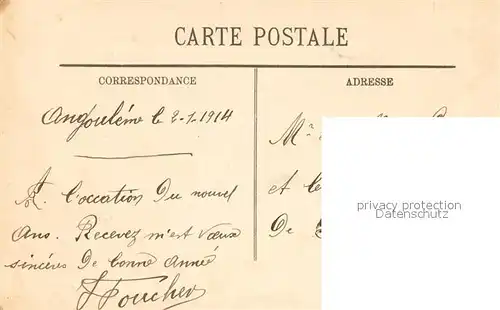 CARTE POSTALE
CORRESPONDANCE
ADRESSE
Angoulême le 2-1-1914
A l'occation Du nouvel
Ans. Recevez m'est Vœux
sincéres De bonne Année
Foucher
Mr
et
De
privacy protection
Datenschutz